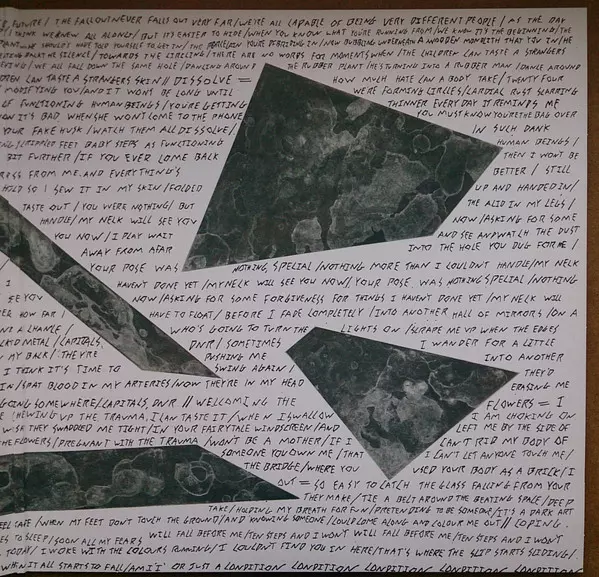 FUTURE / THE FALLOUT NEVER FALLS OUT VERY FAR / WE'RE ALL CAPABLE OF BEING VERY DIFFERENT PEOPLE / AS THE DAY
I THINK WE KNEW ALL ALONG / BUT IT'S EASIER TO HIDE / WHEN YOU KNOW WHAT YOU'RE RUNNING FROM / WE KNOW IT'S THE BEGINNING / THE
WE SHOULD'T HAVE TOLD YOURSELF TO GET IN / THE YOU'RE IN / NEW BUBBLING UNDERNEATH A WOODEN MONOLITH THAT
THE SILENCE / TOWARDS THE CIRCLING / THERE ARE NO WORDS FOR MOMENTS WHEN / THE CHILDREN CAN TASTE A STRANGERS
SOME ALL FALL DOWN THE SAME HOLE / DANCING AROUND THE RUBBER PLANT / HE'S TURNING INTO A RUBBER MAN / DANCE AROUND
CAN TASTE A STRANGERS SKIN // DISSOLVE = HOW MUCH HATE CAN A BODY TAKE / TWENTY FOUR
MODIFYING YOU / AND IT WON'T BE LONG UNTIL WE'RE FORMING CIRCLES / CARDIAL RUST SCARRING
OF FUNCTIONING HUMAN BEINGS / YOU'RE GETTING THINNER EVERY DAY IT REMINDS ME
IT'S BAD WHEN SHE WON'T COME TO THE PHONE YOU MUST KNOW YOU'RE THE BAD OVER
YOUR FAKE HUSK / WATCH THEM ALL DISSOLVE / IN SUCH DANK
FEET BABY STEPS AS FUNCTIONING HUMAN BEINGS /
BIT FURTHER / IF YOU EVER COME BACK THEN I WON'T BE
FROM ME, AND EVERYTHING'S BETTER / STILL
HOLD SO I SEW IT IN MY SKIN / FOLDED UP AND HANDED IN /
TASTE OUT / YOU WERE NOTHING / BUT THE ACID IN MY LEGS /
HANDLE / MY NECK WILL SEE YOU NOW / ASKING FOR SOME
YOU NOW / I PLAY WAIT AND SEE AND WATCH THE DUST
AWAY FROM AFAR INTO THE HOLE YOU DUG FOR ME /
YOUR POSE WAS NOTHING SPECIAL / NOTHING MORE THAN I COULDN'T HANDLE / MY NECK
I HAVEN'T DONE YET / MY NECK WILL SEE YOU NOW / YOUR POSE WAS NOTHING SPECIAL / NOTHING
SEE YOU NOW / ASKING FOR SOME FORGIVENESS FOR THINGS I HAVEN'T DONE YET / MY NECK WILL
HOW FAR I HAVE TO FLOAT / BEFORE I FADE COMPLETELY / INTO ANOTHER HALL OF MIRRORS / ON A
CHANCE / WHO'S GOING TO TURN THE LIGHTS ON / SCRAPE ME UP WHEN THE EDGES
METAL / CAPITALS, DNR / SOMETIMES I WANDER FOR A LITTLE
MY BACK / THEY'RE PUSHING ME INTO ANOTHER
I THINK IT'S TIME TO SWING AGAIN / THEY'D
IN / SPAT BLOOD IN MY ARTERIES / NOW THEY'RE IN MY HEAD ERASING ME
GOING SOMEWHERE / CAPITALS, DNR // WELCOMING THE FLOWERS = I
CHEWING UP THE TRAUMA, I CAN TASTE IT / WHEN I SWALLOW I AM CHOKING ON
THEY SWADDLED ME TIGHT / IN YOUR FAIRYTALE WINDSCREEN / AND LEFT ME BY THE SIDE OF
THE FLOWERS / PREGNANT WITH THE TRAUMA / WON'T BE A MOTHER / IF I CAN'T RID MY BODY OF
SOMEONE YOU OWN ME / THAT I CAN'T LET ANYONE TOUCH ME /
THE BRIDGE / WHERE YOU USED YOUR BODY AS A BRICK / I
OUT = SO EASY TO CATCH THE GLASS FALLING FROM YOUR
THEY MAKE / TIE A BELT AROUND THE BEATING SPACE / DEEP
TAKE / HOLDING MY BREATH FOR FUN / PRETENDING TO BE SOMEONE / IT'S A DARK ART
FEEL SAFE / WHEN MY FEET DON'T TOUCH THE GROUND / AND KNOWING SOMEONE / COULD COME ALONG AND COLOUR ME OUT // COPING.
TO SLEEP / SOON ALL MY FEARS WILL FALL BEFORE ME / TEN STEPS AND I WON'T WILL FALL BEFORE ME / TEN STEPS AND I WON'T
TODAY / I WOKE WITH THE COLOURS RUNNING / I COULDN'T FIND YOU IN HERE / THAT'S WHERE THE SLIP STARTS SLIDING /
WHEN IT ALL STARTS TO FALL / AM I 'I' OR JUST A CONDITION CONDITION CONDITION CONDITION CONDITION CONDITION